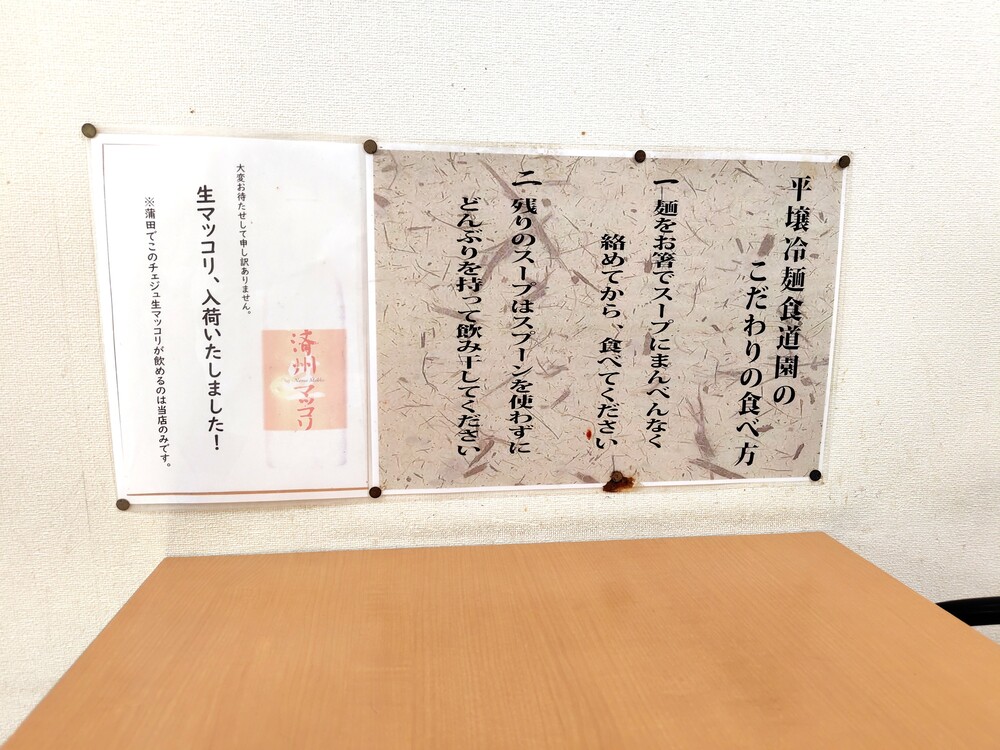 平壌冷麺食道園の
こだわりの食べ方
一 麺をお箸でスープにまんべんなく
絡めてから、食べてください
二 残りのスープはスプーンを使わずに
どんぶりを持って飲み干してください
済州マッコリ
大変お待たせして申し訳ありません。
生マッコリ、入荷いたしました！
※蒲田でこのチェジュ生マッコリが飲めるのは当店のみです。